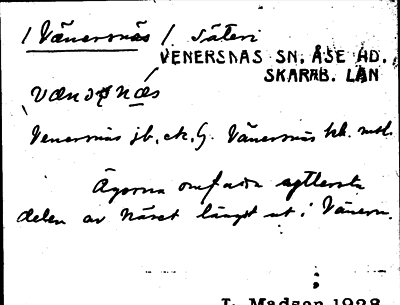 / Vänersnäs / Säteri
VENERSNÄS SN. ÅSE HD.
SKARAB. LÄN
Venersnäs jb, ck, G. Vänersnäs
Ägorna omfatta yttersta
delen av näset längst ut i Vänern.
L. Madsen 1928